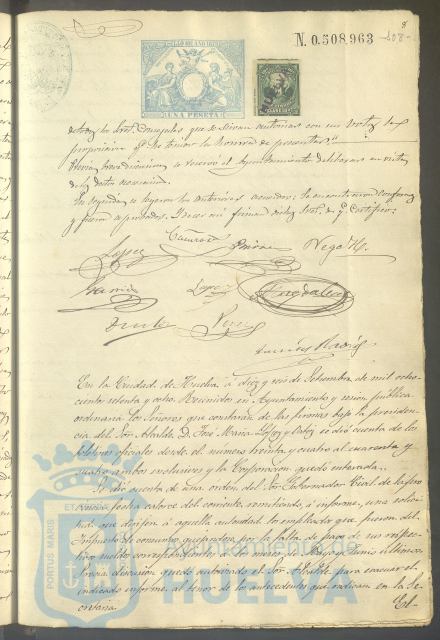 8
N. 0.508,963
SELLO 11º AÑO 1878
UNA PESETA
de los Sres. Concejales que se sirvan autorizar con sus votos la
proposicion que tiene la honra de presentar."
Previa breve discusion se reservó el Ayuntamiento deliberar en vista
de los datos necesarios.
En seguida se leyeron los anteriores acuerdos: se encontraron conformes
y fueron aprobados. Y doces mil firman dichos Sres. de que Certifico:
Lopez
Vega H.
Garrido
Lopez
Perez
En la Ciudad de Huelva a diez y seis de Setiembre de mil ocho-
cientos setenta y ocho. Reunidos en Ayuntamiento y sesion pública
ordinaria los Señores que constarán de las firmas bajo la presiden-
cia del Sor. Alcalde D. José Maria Lopez y se dió cuenta de los
boletines oficiales desde el numero treinta y cuatro al cuarenta y
cuatro ambos inclusives y la Corporacion quedó enterada.
Se dió cuenta de una orden del Sor. Gobernador Civil de la pro-
vincia fecha catorce del corriente remitiendo, á informe, una solici-
tud que dirijen á aquella autoridad los empleados que fueron del
Impuesto de consumos quejandose por la falta de pago de sus respec-
tivo sueldo correspondiente á los meses de Mayo y Junio ultimos.
Previa discusion quedó autorizado el Sor. Alcalde para evacuar el
indicado informe al tenor de los antecedentes que radican en la Se-
cretaria.
El-
PORTUS MARIS
ET TERRAE
Ayuntamiento de
HUELVA